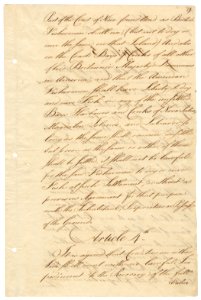 Part of the Coast of Newfoundland as British
Fishermen shall use, (but not to dry or
cure the same on that Island,) And also
on the Coasts Bays & Creeks of all other
of his Britannic Majesty's Dominions
in America, and that the American
Fishermen shall have Liberty to dry
and cure Fish in any of the unsettled
Bays Harbours and Creeks of Nova Scotia,
Magdalen Islands, and Labrador, so
long as the same shall remain unsettled
but so soon as the same or either of them
shall be settled, it shall not be lawful
for the said Fishermen to dry or cure
Fish at such Settlement, without a
previous Agreement for that purpose
with the Inhabitants, Proprietors or Possessors
of the Ground.
Article 4th.
It is agreed that Creditors on either
Side shall meet with no lawful Im-
pediment to the Recovery of the full
Value